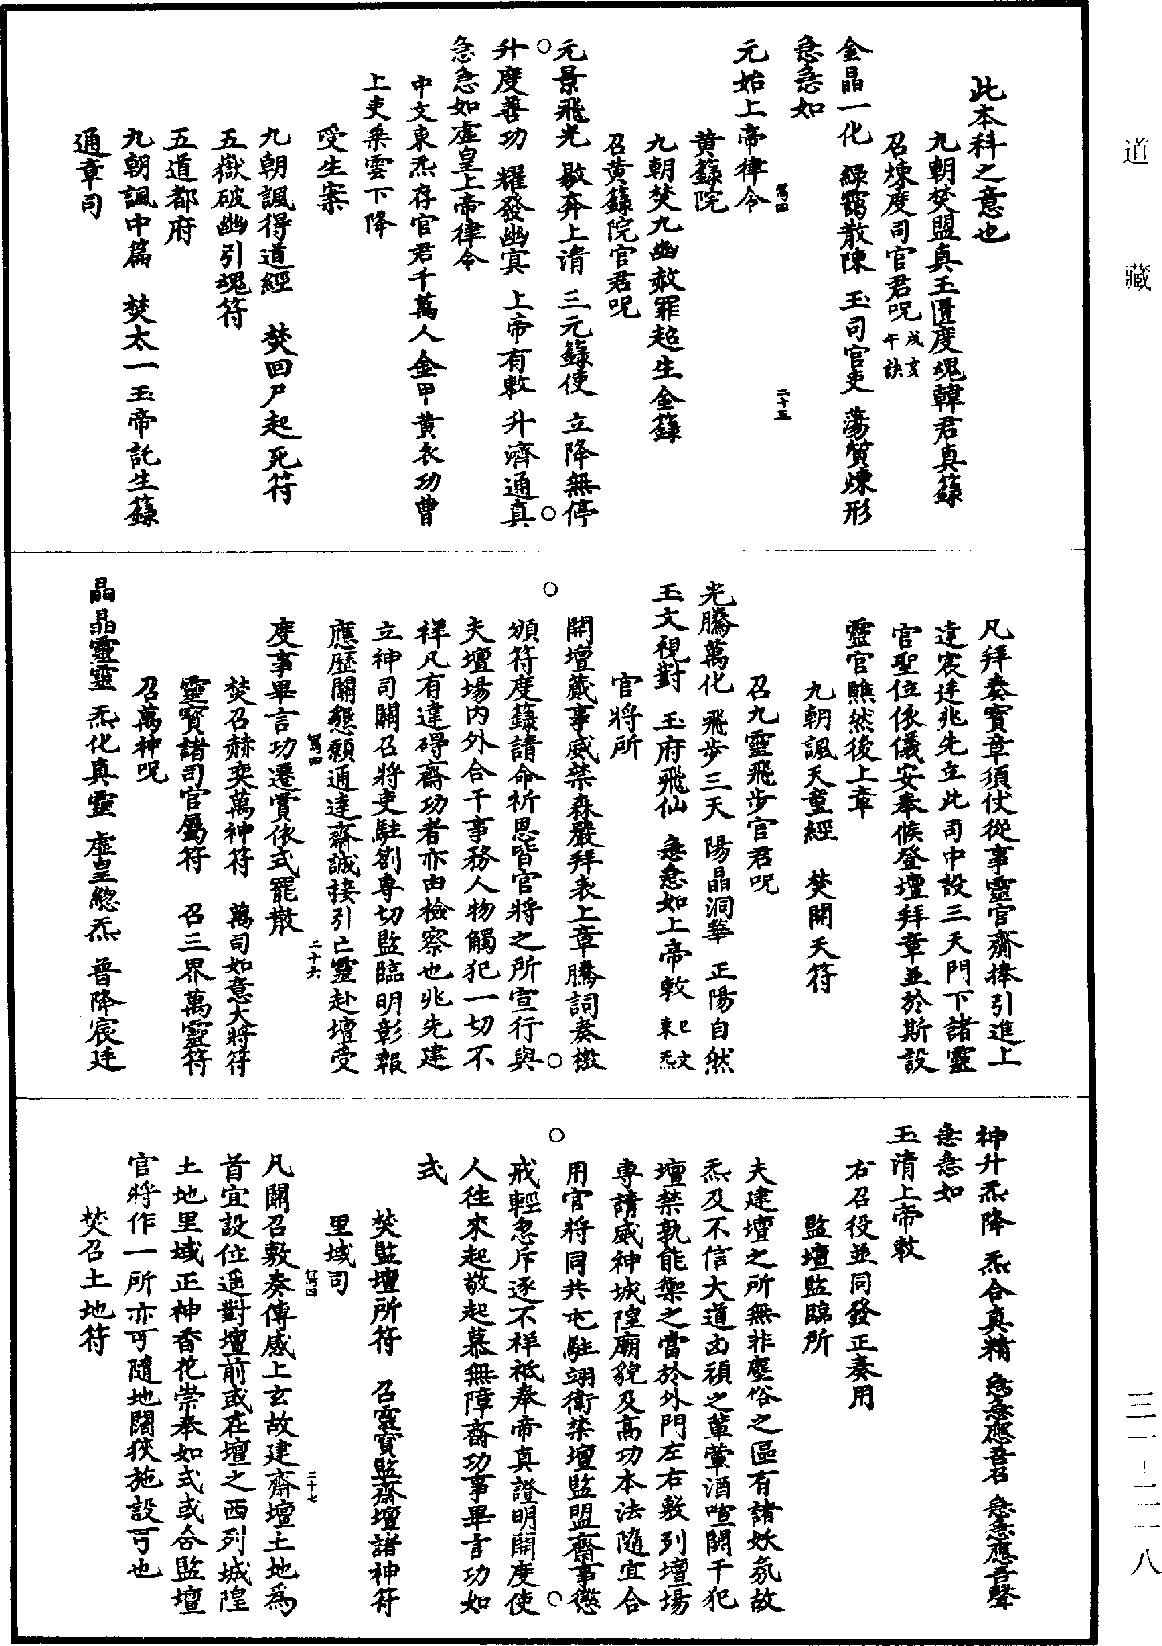 道藏
此本科之意也
九朝焚盟真玉匱度魂韓君真籙
召煉度司官君呪戌亥午訣
金晶一化 綠靄散陳 玉司官吏 蕩質煉形
急急如
元始上帝律令
二十五
黃籙院
九朝焚九幽赦罪超生金籙
召黃籙院官君呪
元景飛光 歘奔上清 三元籙使 立降無停
升度善功 耀發幽冥 上帝有敕 升濟通真
急急如虛皇上帝律令
中文東炁存官君千萬人金甲黃衣功曹
上吏乘雲下降
受生案
九朝諷得道經 焚回尸起死符
五嶽破幽引魂符
五道都府
九朝諷中篇 焚太一玉帝託生籙
通章司
凡拜奏寶章須仗從事靈官齎捧引進上
達宸廷兆先立此司中設三天門下諸靈
官聖位依儀安奉候登壇拜章並於斯設
靈官醮然後上章
九朝諷天童經 焚開天符
召九靈飛步官君呪
光騰萬化 飛步三天 陽晶洞華 正陽自然
玉文視對 玉府飛仙 急急如上帝敕 巳文東炁
官將所
開壇蕆事威禁森嚴拜表上章騰詞奏檄
頒符度籙請命祈恩皆官將之所宣行與
夫壇場內外合干事務人物觸犯一切不
祥凡有違碍齋功者亦由檢察也兆先建
立神司關召將吏駐劄專切監臨明彰報
應歷關懇願通達齋誠接引亡靈赴壇受
二十六
度事畢言功遷賞依式罷散
焚召赫奕萬神符 萬司如意大將符
靈寶諸司官屬符 召三界萬靈符
召萬神呪
晶晶靈靈 炁化真靈 虛皇總炁 普降宸廷
神升炁降 炁合真精 急急應吾召 急急應吾聲
急急如
玉清上帝敕
右召役並同發正奏用
監壇監臨所
夫建壇之所無非塵俗之區有諸妖氛故
炁及不信大道凶頑之輩葷酒喧鬧干犯
壇禁孰能禦之當於外門左右敷列壇場
專請威神城隍廟貌及高功本法隨宜合
用官將同共屯駐翊衛禁壇監盟齋事懲
戒輕忽斥逐不祥祗奉帝真證明開度使
人往來起敬起慕無障齋功事畢言功如
式
焚監壇所符 召靈寶監齋壇諸神符
里域司
二十七
凡關召敷奏傳感上玄故建齋壇土地爲
首宜設位遥對壇前或在壇之西列城隍
土地里域正神香花崇奉如式或合監壇
官將作一所亦可隨地闊狹施設可也
焚召土地符
三一－二一八